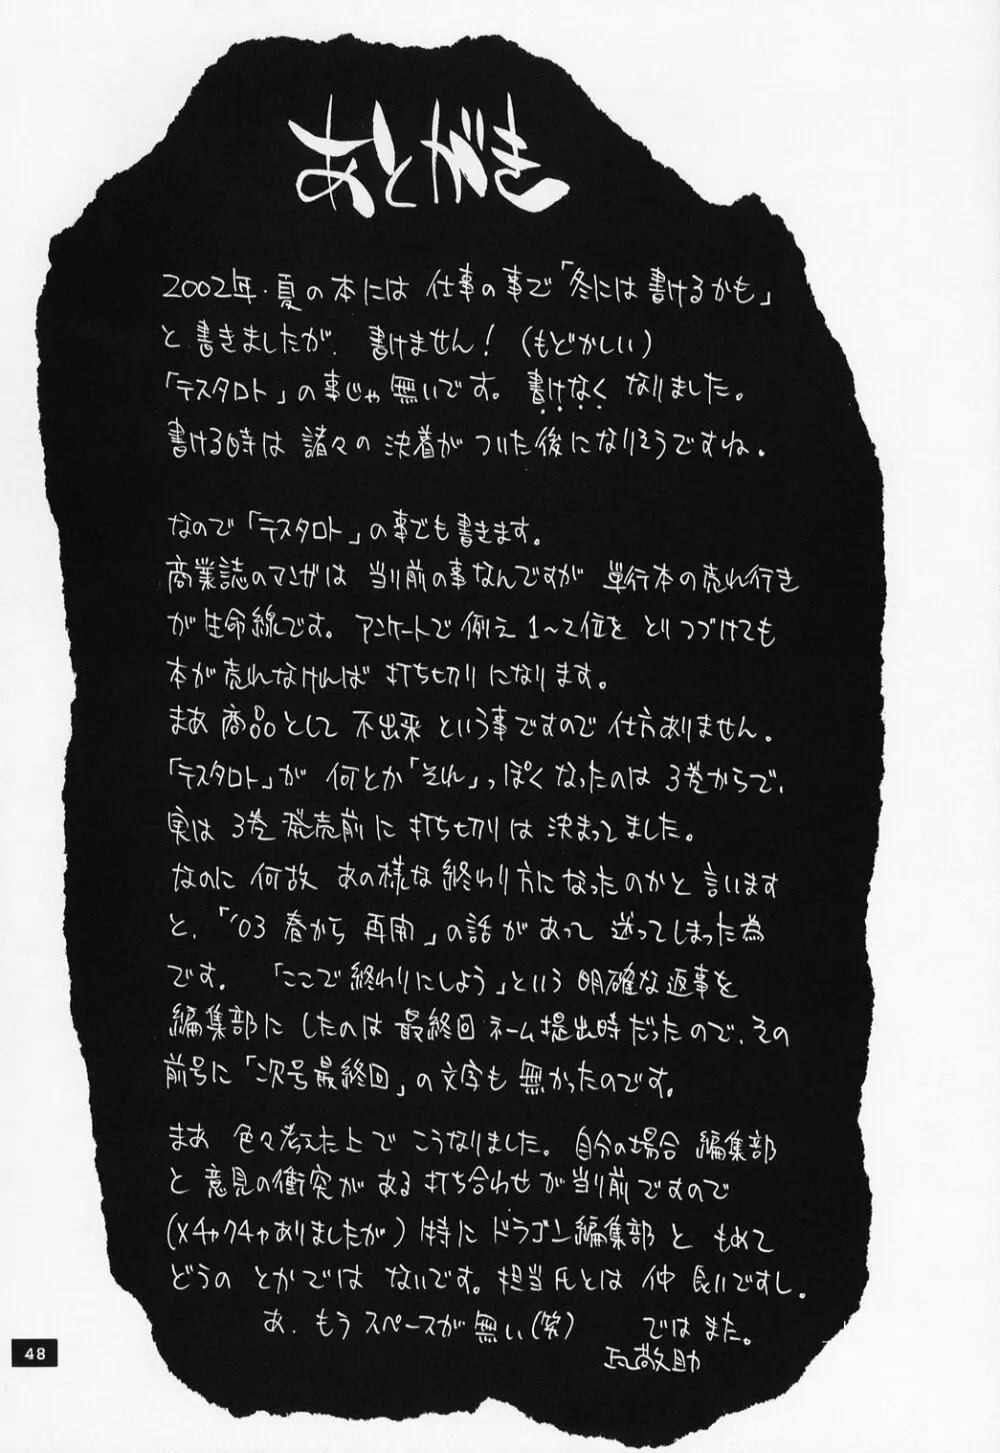 あとがき
2002年・夏の本には 仕事の事で「冬には書けるかも」
と書きましたが、書けません！（もどかしい）
「テスタロト」の事じゃ無いです。書けなく なりました。
書ける時は 諸々の決着が ついた後になりそうですね。
なので「テスタロト」の事でも書きます。
商業誌のマンガは 当り前の事なんですが 単行本の売れ行き
が生命線です。アンケートで例え 1〜2位を とりつづけても
本が売れなければ 打ち切りになります。
まあ商品として 不出来 という事ですので 仕方ありません。
「テスタロト」が 何とか「それ」っぽくなったのは 3巻からで、
実は 3巻発売前に 打ち切りは 決まってました。
なのに 何故 あの様な終わり方になったのかと 言います
と、「'03 春から 再開」の話があって 迷ってしまった為
です。「ここで終わりにしよう」という 明確な返事を
編集部に したのは 最終回 ネーム提出時だったので、その
前号に「次号最終回」の文字も 無かったのです。
まあ 色々考えた上で こうなりました。自分の場合 編集部
と 意見の衝突が ある 打ち合わせが当り前ですので
(メチャクチャありましたが) 特に ドラゴン編集部と もめて
どうの とかでは ないです。担当氏とは 仲 良いですし。
あ、もう スペースが 無い(笑) ではまた。
三部敬助
48